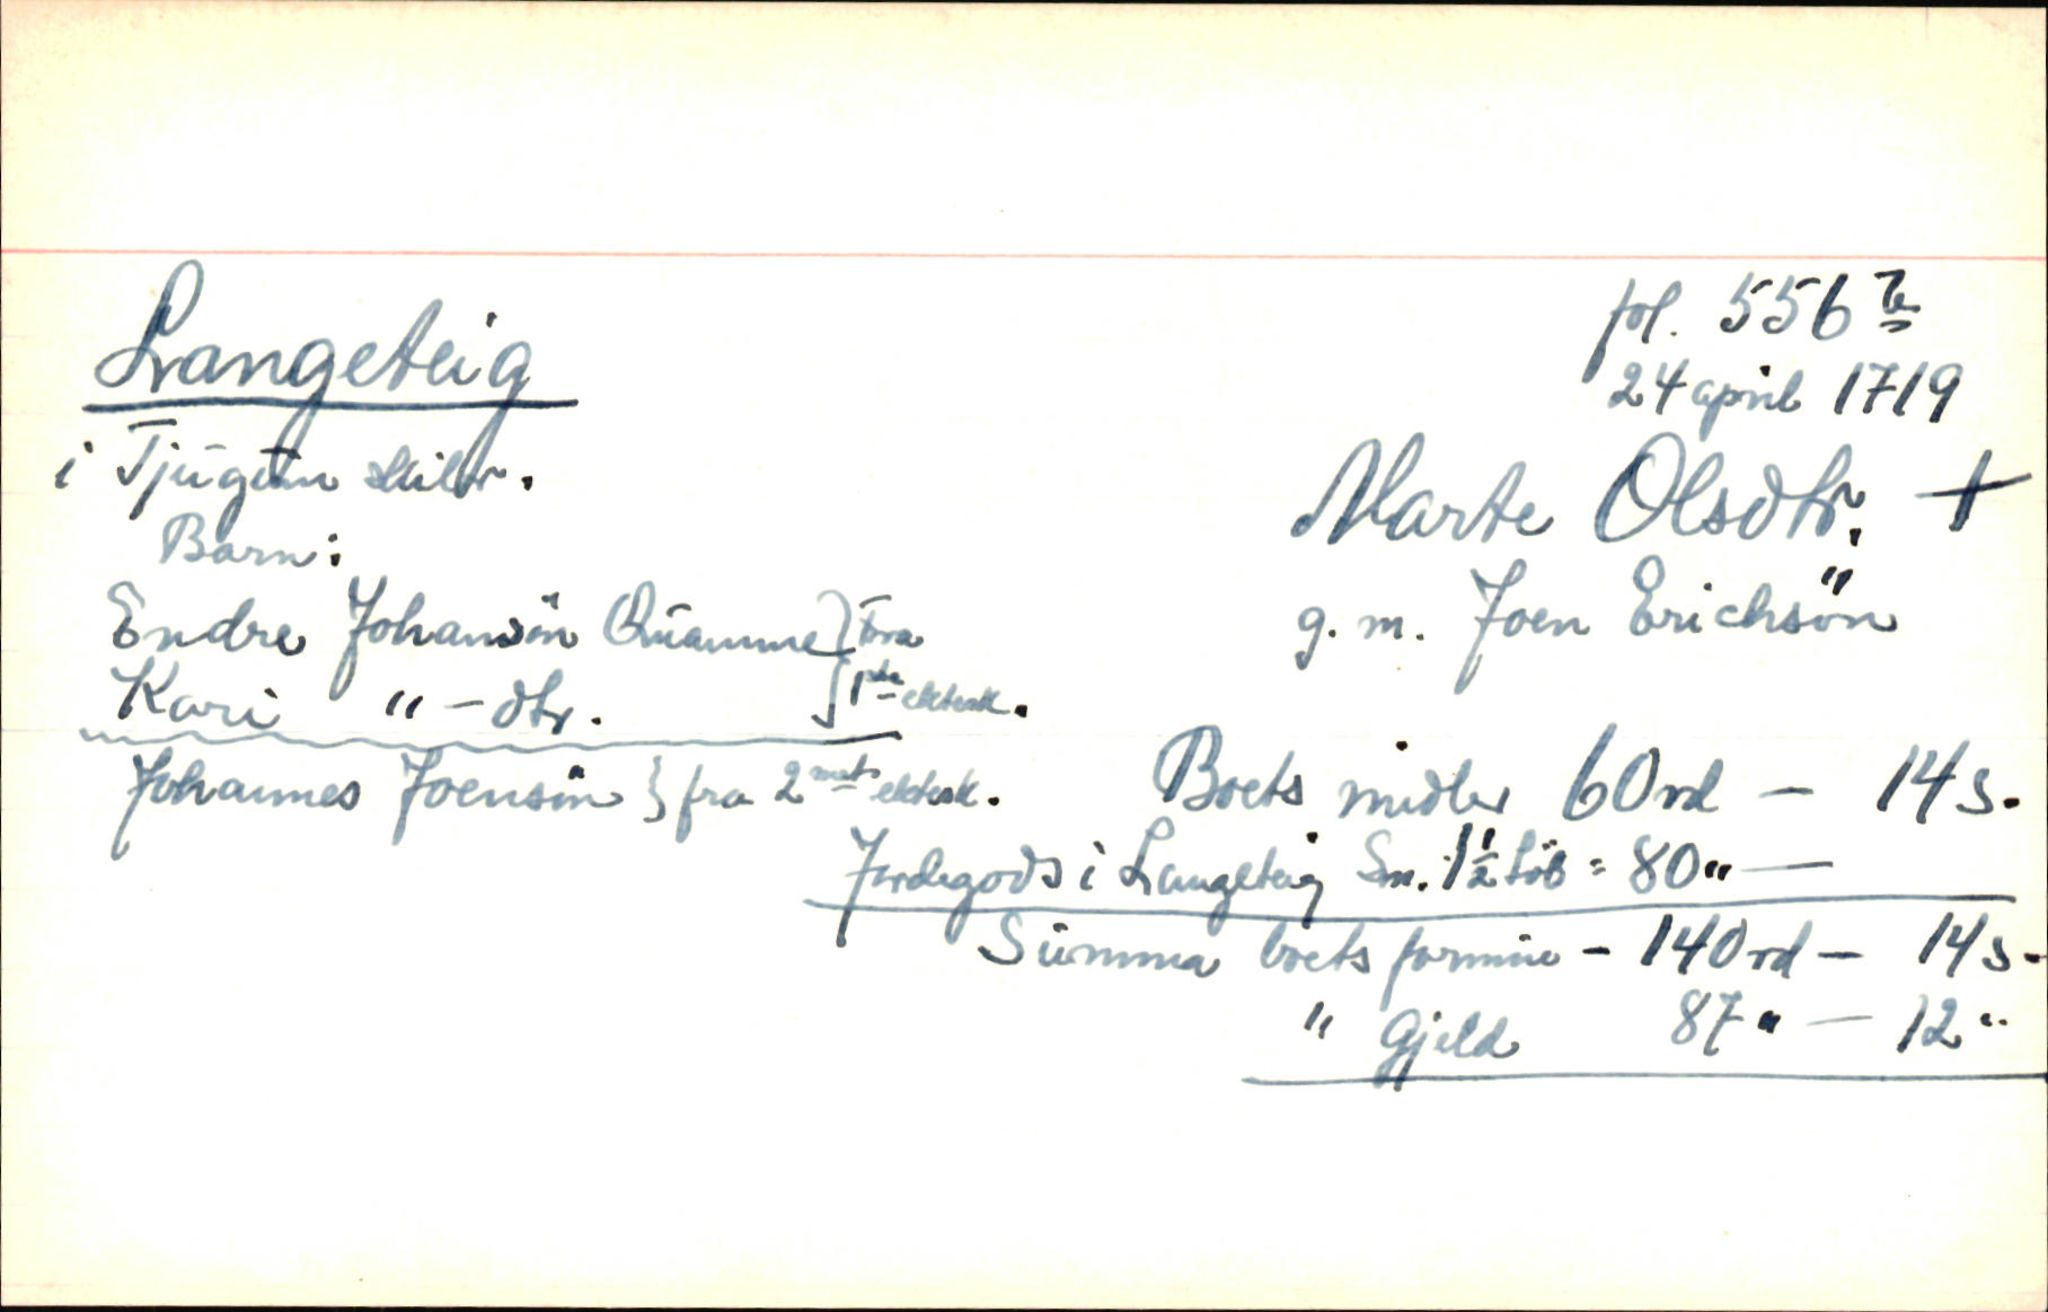 Langeteig
fol. 556 b
24 april 1719
i Tjugum skibr.
Marte Olsdtr. +
Barn:
g. m. Joen Erichsön
Endre Johansön Quamme } Fra
Kari " - dtr. } 1ste ektesk.
Johannes Joensön } fra 2net ektesk.
Boets midler 60 rd - 14 s.
Jordegods i Langeteig Sm. 1 1/2 Löb = 80 " —
Summa boets formue - 140 rd - 14 s -
" Gjeld 87 " — 12 "